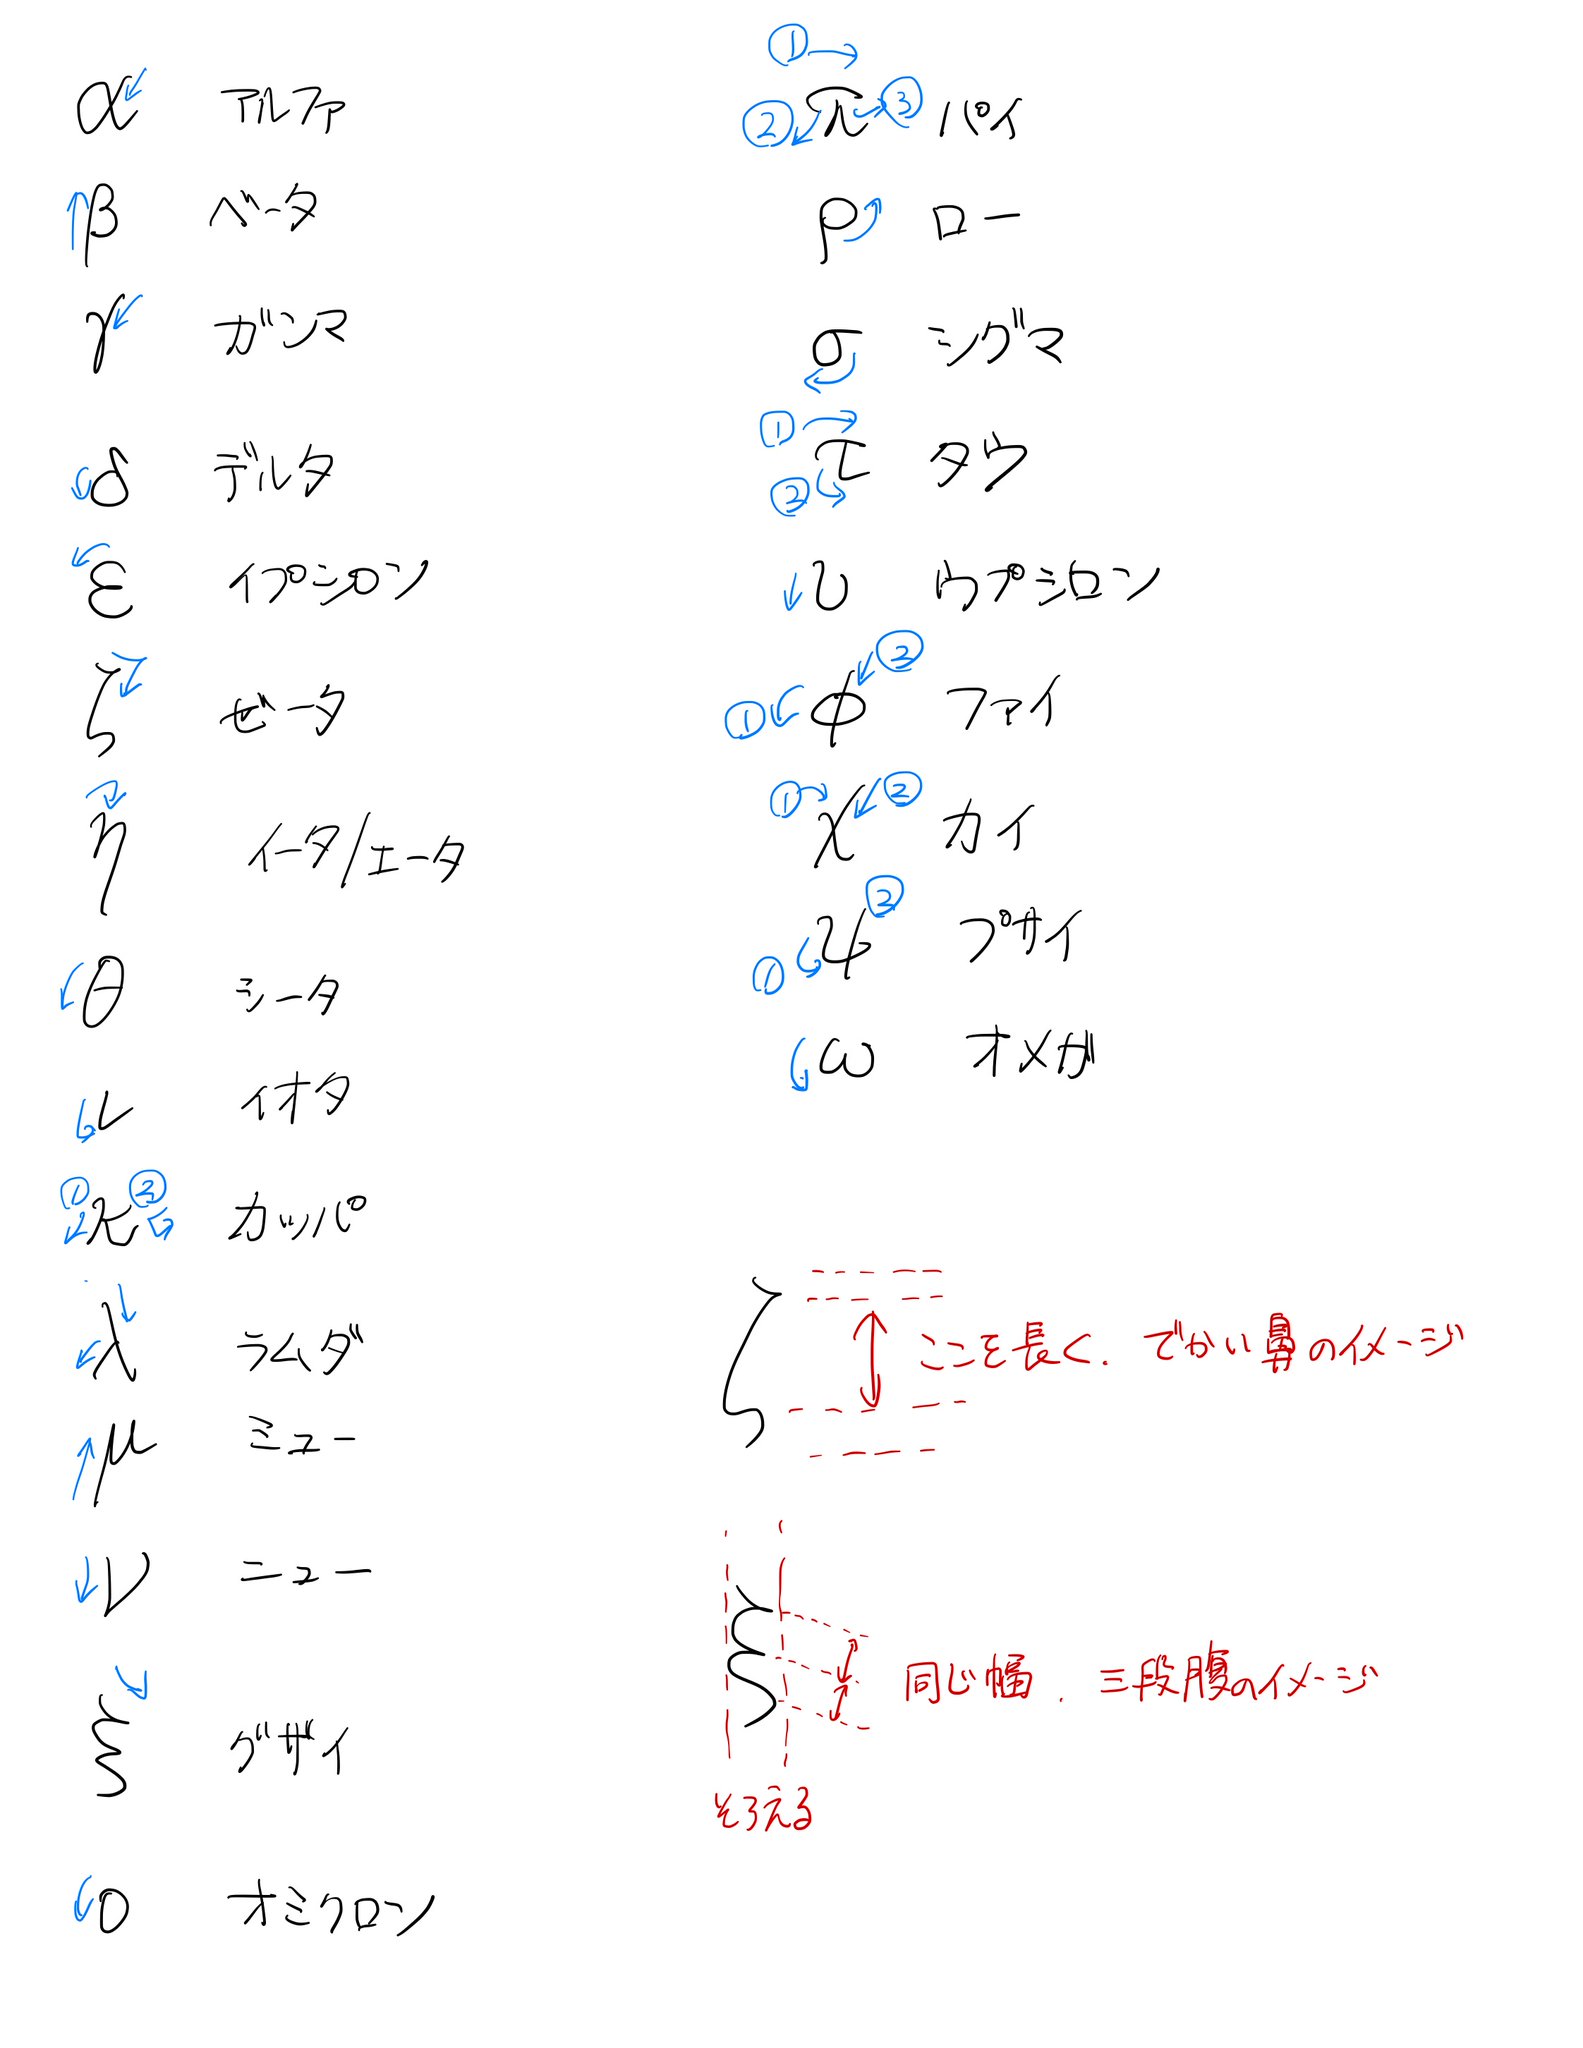 α アルファ
β ベータ
γ ガンマ
δ デルタ
ε イプシロン
ζ ゼータ
η イータ/エータ
θ シータ
ι イオタ
① κ ② カッパ
λ ラムダ
μ ミュー
ν ニュー
ξ グザイ
ο オミクロン
①
② π ③ パイ
ρ ロー
σ シグマ
①
τ タウ
②
υ ウプシロン
② 
① φ ファイ
① χ ② カイ
②
ψ プサイ
①
ω オメガ
ζ ここを長く. でかい鼻のイメージ
ξ 同じ幅. 三段腹のイメージ
そろえる